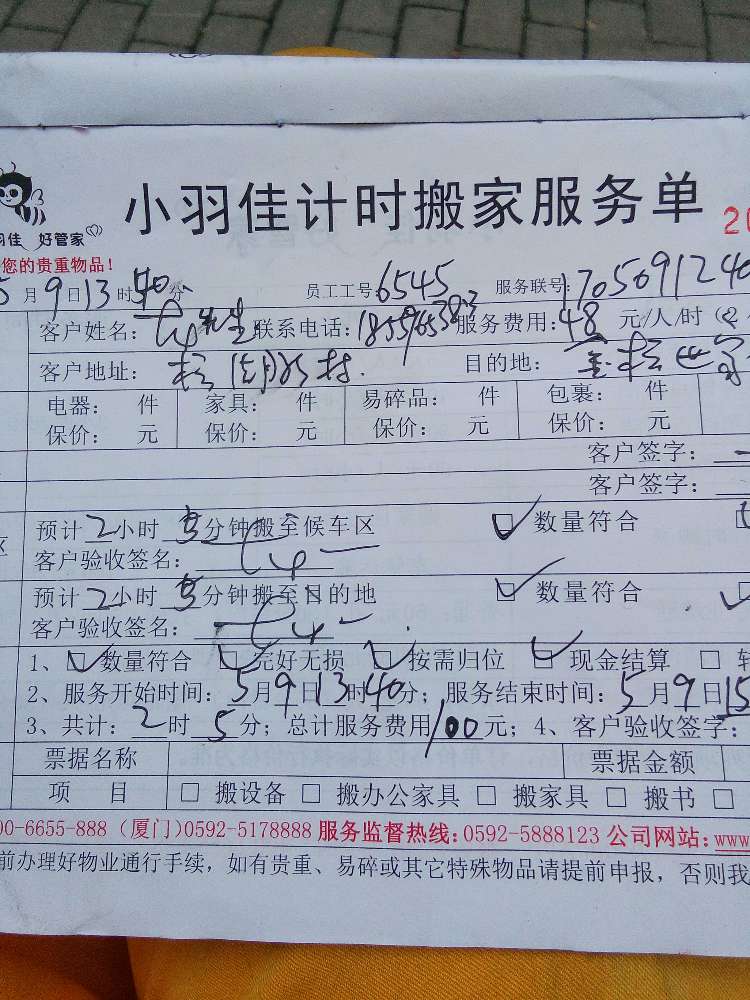 小羽佳计时搬家服务单
羽佳 好管家
您的贵重物品！
5月9日13时40分 员工工号6545 服务联号1705691240
客户姓名： 先生 联系电话： 服务费用：48 元/人/时
客户地址： 目的地：
电器： 件 家具： 件 易碎品： 件 包裹： 件
保价： 元 保价： 元 保价： 元 保价： 元
客户签字：
客户签字：
预计2小时5分钟搬至候车区 数量符合
客户验收签名：
预计2小时5分钟搬至目的地 数量符合
客户验收签名：
1、数量符合 完好无损 按需归位 现金结算
2、服务开始时间：5月9日13时40分；服务结束时间：5月9日15
3、共计：2时5分；总计服务费用100元；4、客户验收签字：
票据名称 票据金额
项 目 搬设备 搬办公家具 搬家具 搬书
00-6655-888（厦门）0592-5178888 服务监督热线：0592-5888123 公司网站：www
前办理好物业通行手续，如有贵重、易碎或其它特殊物品请提前申报，否则我